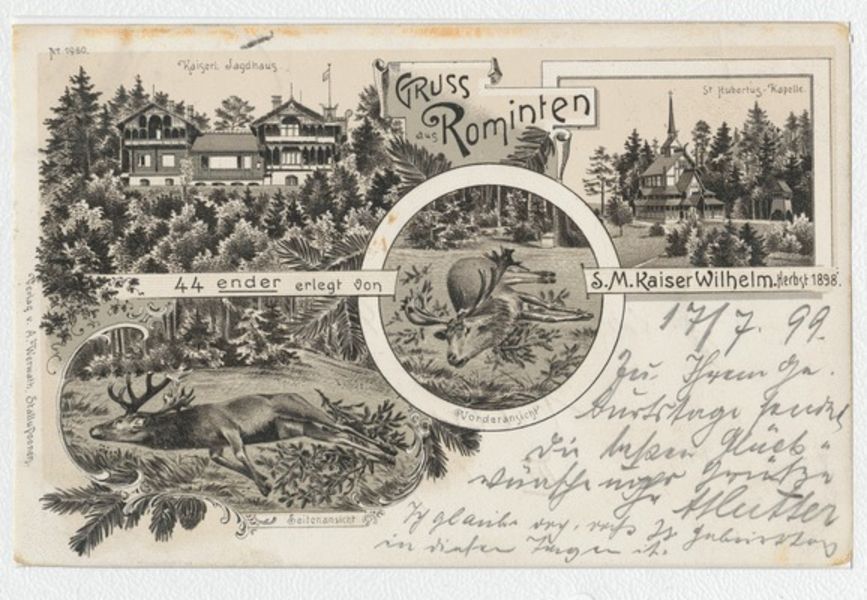 Nr. 1960.
Kaiserl. Jagdhaus
GRUSS
aus Rominten
St Hubertus-Kapelle.
44 ender erlegt von
S. M. Kaiser Wilhelm. Herbst 1898.
Vorderansicht
Seitenansicht
Verlag v. A. Stallupoenen.
17/7. 99.
Zu Ihrem Ge-
burtstage sendet
die besten Glück-
wünsche Grüße
Ihr
Ich glaube daß Geburtstag
in diesen Tagen ist.